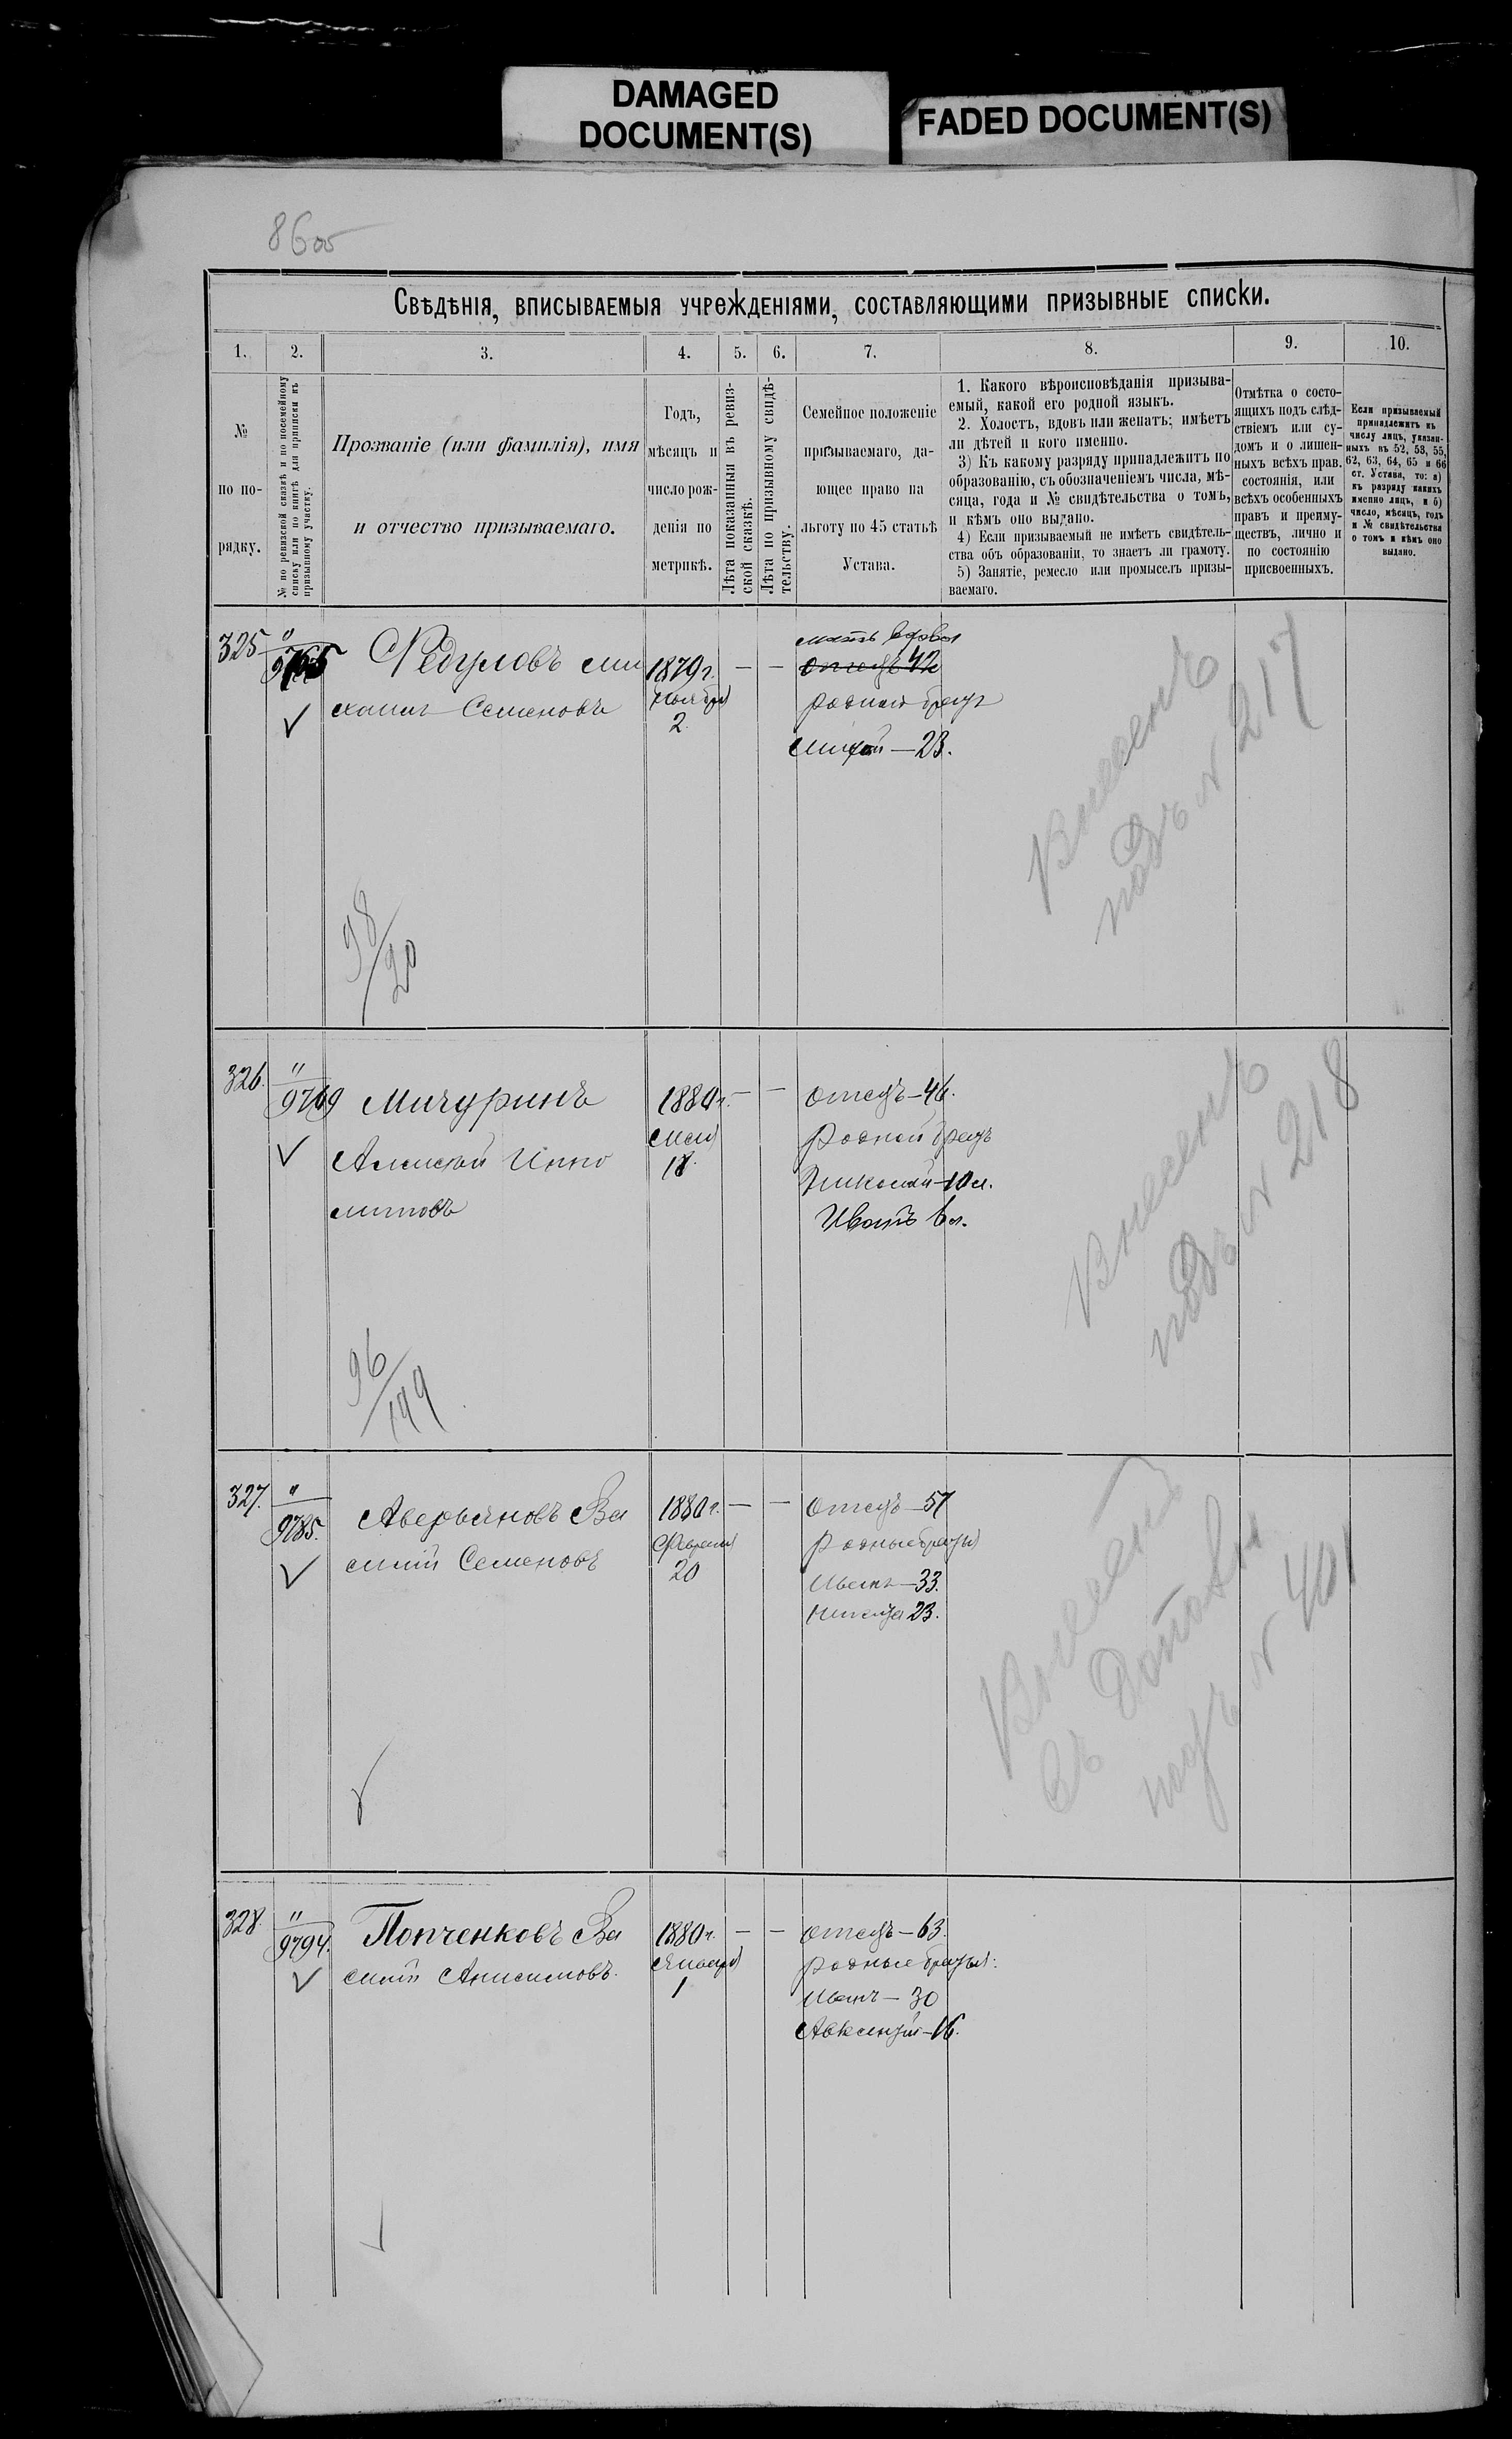 DAMAGED
DOCUMENT(S)
FADED DOCUMENT(S)
Свѣдѣнія, вписываемыя учрежденіями, составляющими призывные списки.
1. 2. 3. 4. 5. 6. 7. 8. 9. 10.
№
по по-
рядку.
№ по ревизской сказкѣ и по посемейному
списку или по книгѣ для приписки къ
призывному участку.
Прозваніе (или фамилія), имя
и отчество призываемаго.
Годъ,
мѣсяцъ и
число рож-
денія по
метрикѣ.
Лѣта показанныя въ ревиз-
ской сказкѣ.
Лѣта по призывному свидѣ-
тельству.
Семейное положеніе
призываемаго, да-
ющее право на
льготу по 45 статьѣ
Устава.
1. Какого вѣроисповѣданія призыва-
емый, какой его родной языкъ.
2. Холостъ, вдовъ или женатъ; имѣетъ
ли дѣтей и кого именно.
3) Къ какому разряду принадлежитъ по
образованію, съ обозначеніемъ числа, мѣ-
сяца, года и № свидѣтельства о томъ,
и кѣмъ оно выдано.
4) Если призываемый не имѣетъ свидѣтель-
ства объ образованіи, то знаетъ ли грамоту.
5) Занятіе, ремесло или промыселъ призы-
ваемаго.
Отмѣтка о состо-
ящихъ подъ слѣд-
ствіемъ или су-
домъ и о лишен-
ныхъ всѣхъ прав.
состоянія, или
всѣхъ особенныхъ
правъ и преиму-
ществъ, лично и
по состоянію
присвоенныхъ.
Если призываемый
принадлежитъ къ
числу лицъ, указан-
ныхъ въ 52, 53, 55,
62, 63, 64, 65 и 66
ст. Устава, то: а)
къ разряду какихъ
именно лицъ, и б)
число, мѣсяцъ, годъ
и № свидѣтельства
о томъ и кѣмъ оно
выдано.
325 "
9765
Федуловъ Ми
хаилъ Семеновъ
1879 г.
Ноября
2
— —
мать вдова
отецъ 42
родной братъ
23.
Внесенъ
подъ № 217
98/20
326. "
9769
Мичуринъ
Алексѣй
1880 г.
Мая
18.
— —
отецъ — 46.
Родной братъ
Николай — 10 л.
Иванъ 6 л.
Внесенъ
подъ № 218
96/199
327. "
9785.
Аверьяновъ Ва
силій Семеновъ
1880 г.
Февраля
20
— —
отецъ — 57
Родные братья
Иванъ — 33.
Никита 23.
Внесенъ
въ
подъ № 401
328. "
9794.
Попченковъ Ва
силій Анисимовъ.
1880 г.
Января
1
— —
отецъ — 63.
родные братья:
Иванъ — 30
Авксентій — 16.